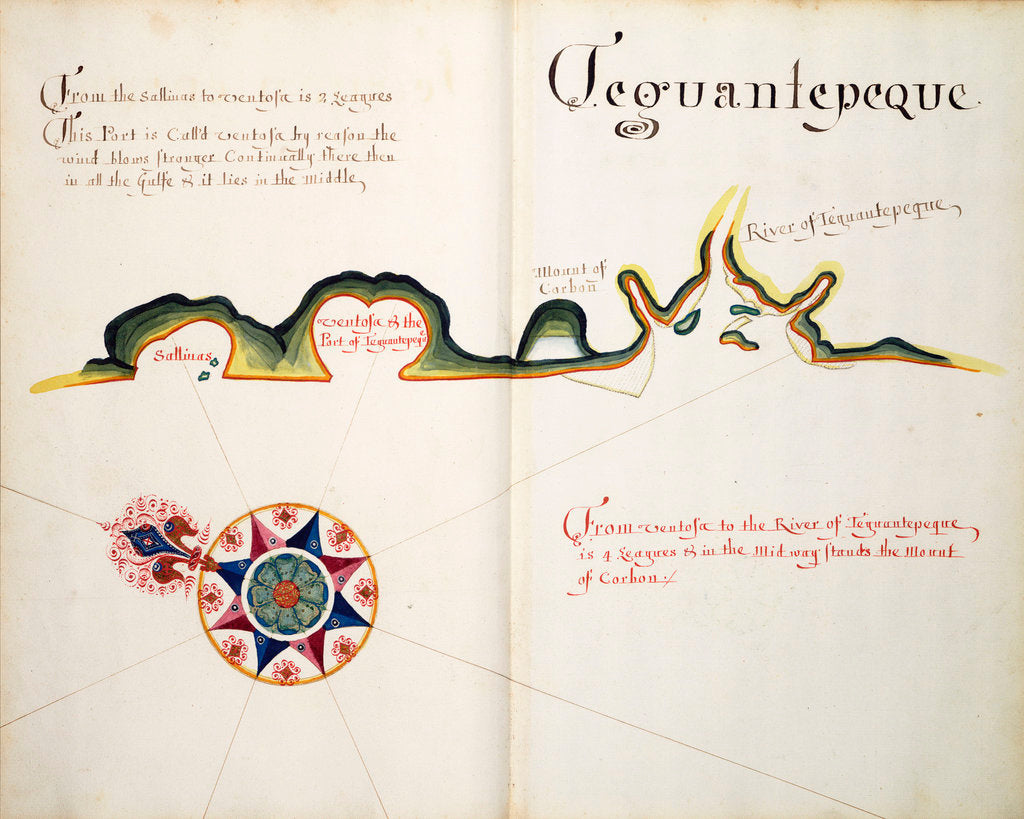 From the Sallinas to ventosa is 2 Leagues
This Port is Call'd ventosa by reason the
wind blows stronger Continually there then
in all the Gulfe & it lies in the Middle
Teguantepeque.
River of Teguantepeque
Mount of
Corbon
ventosa & the
Port of Teguantepeqe
Sallinas
From ventosa to the River of Teguantepeque
is 4 Leagues & in the Midway stands the Mount
of Corbon./